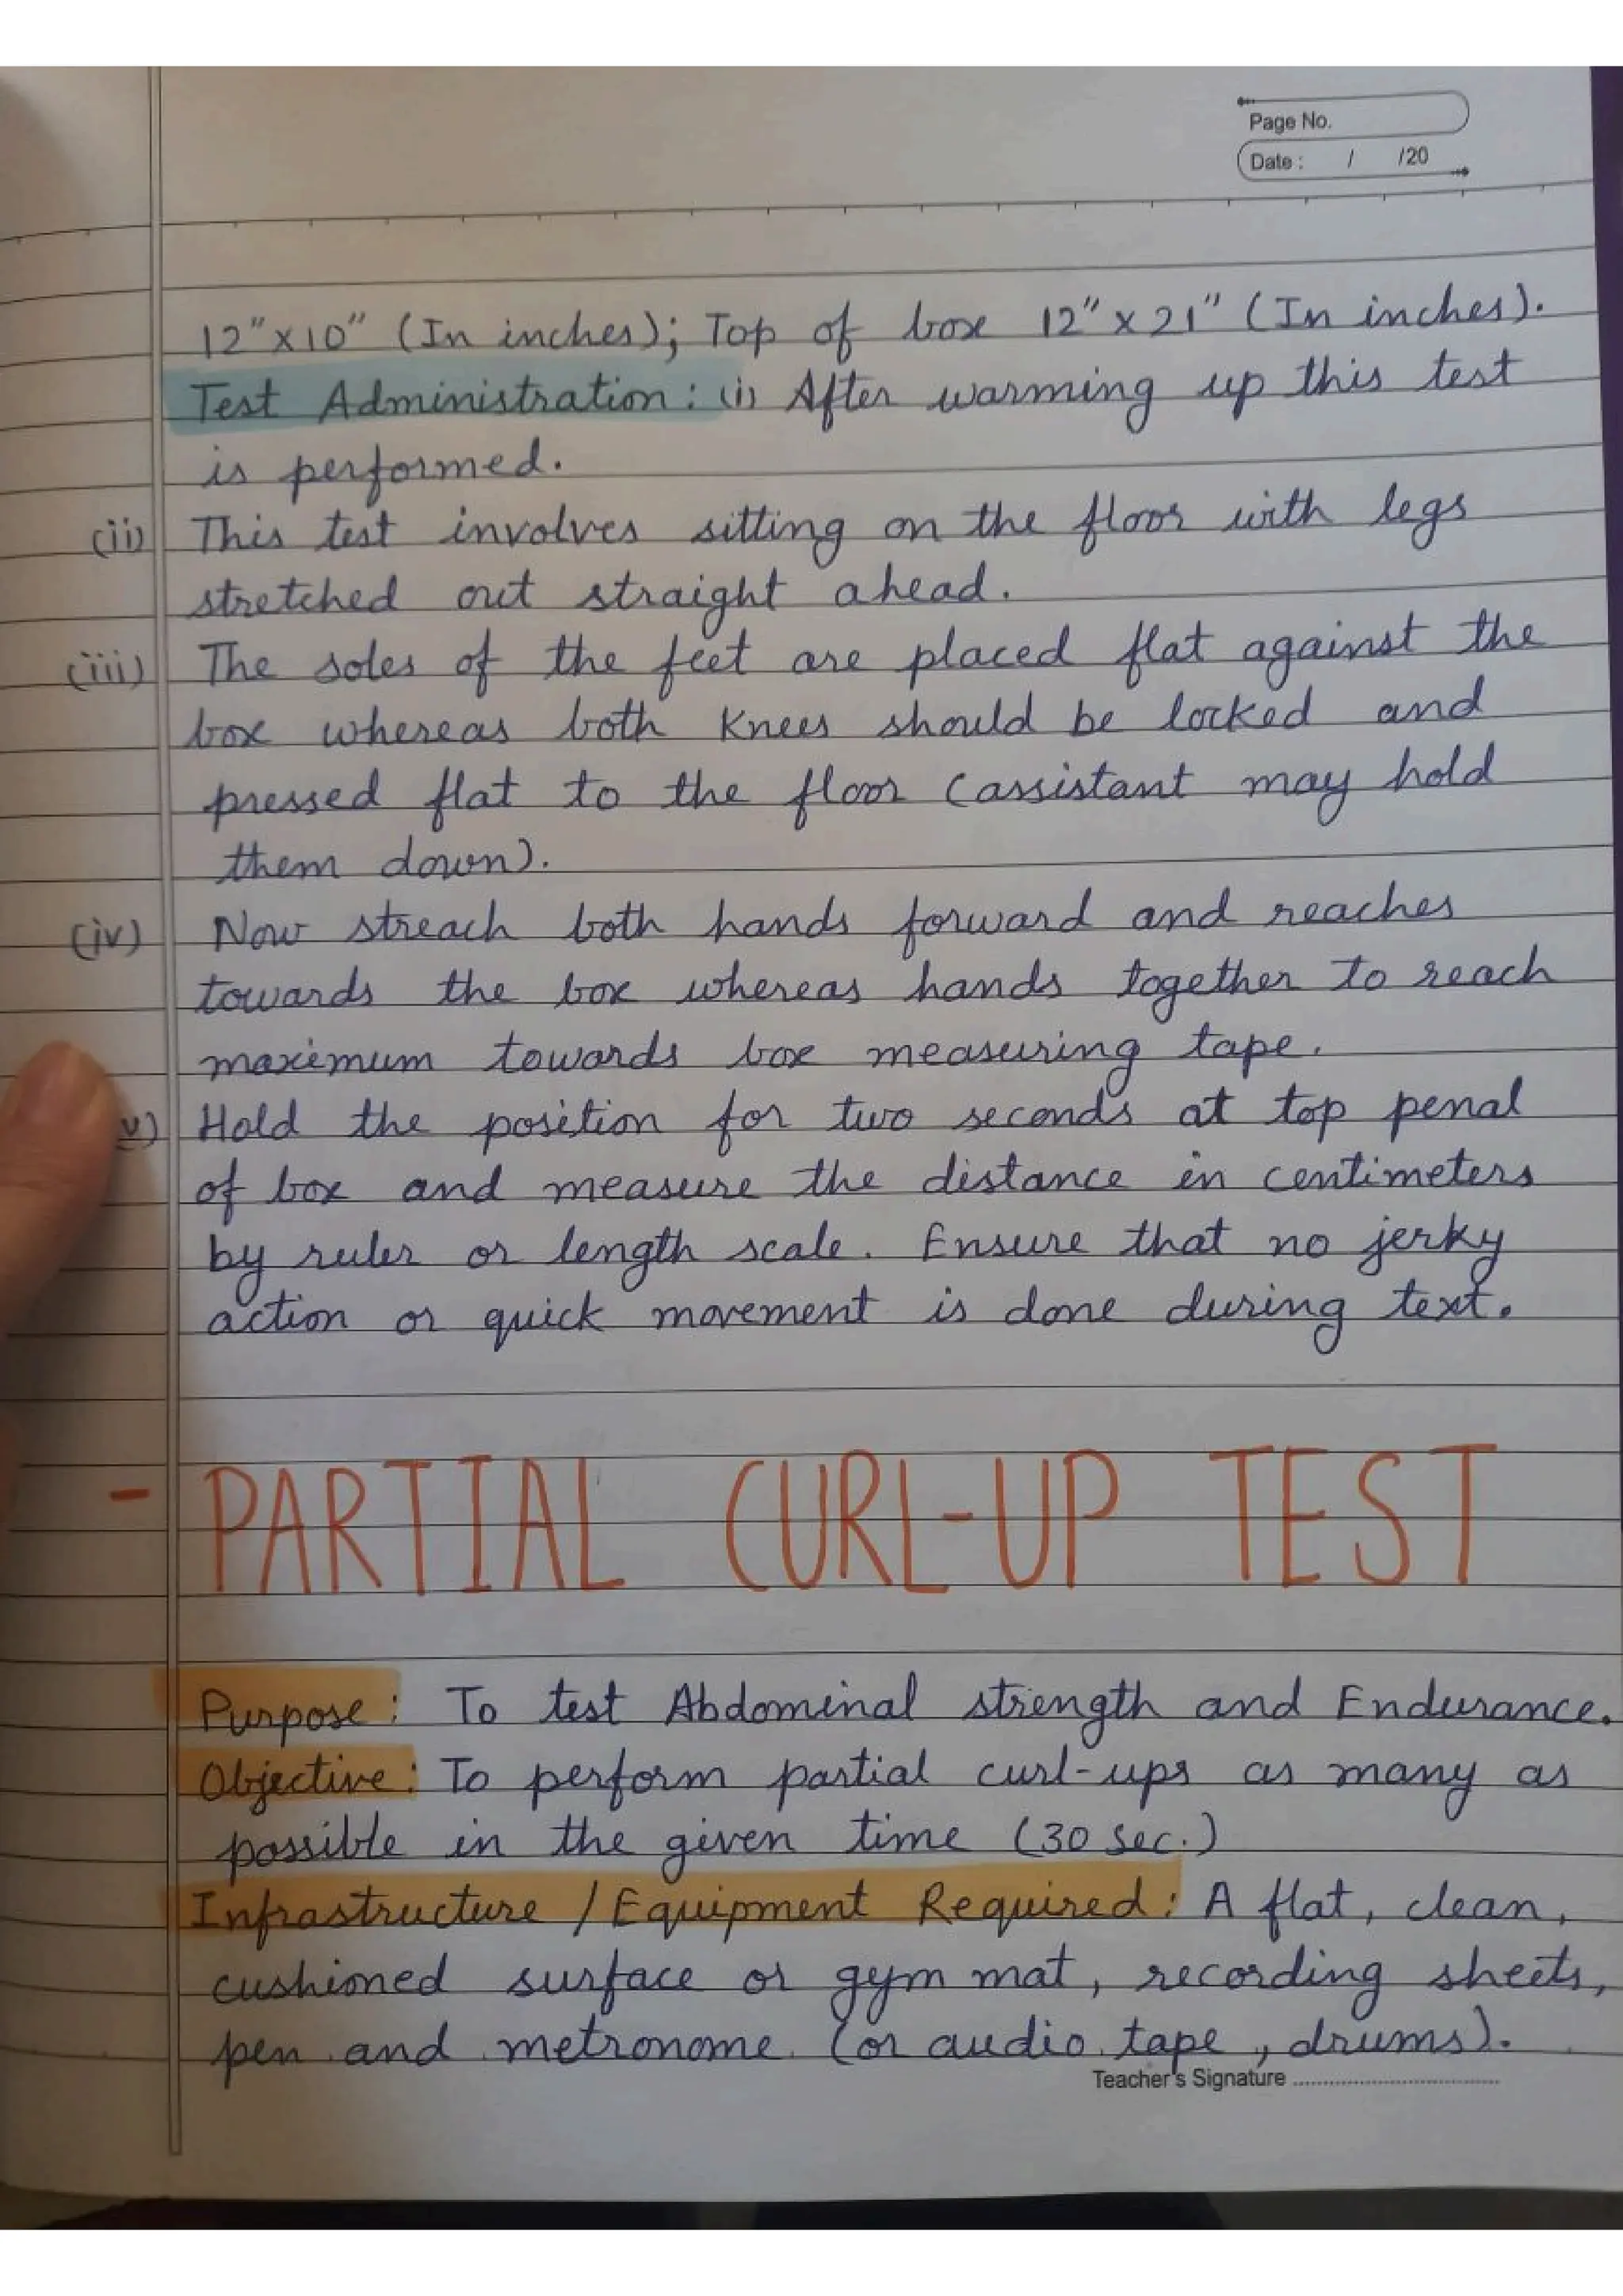 Page No.
Date : / /20
12"x10" (In inches); Top of box 12"x21" (In inches).
Test Administration : (i) After warming up this test
is performed.
(ii) This test involves sitting on the floor with legs
stretched out straight ahead.
(iii) The soles of the feet are placed flat against the
box whereas both knees should be locked and
pressed flat to the floor (assistant may hold
them down).
(iv) Now streach both hands forward and reaches
towards the box whereas hands together to reach
maximum towards box measuring tape.
v) Hold the position for two seconds at top penal
of box and measure the distance in centimeters
by ruler or length scale. Ensure that no jerky
action or quick movement is done during text.
- PARTIAL CURL-UP TEST
Purpose : To test Abdominal strength and Endurance.
Objective : To perform partial curl-ups as many as
possible in the given time (30 sec.)
Infrastructure / Equipment Required : A flat, clean,
cushioned surface or gym mat, recording sheets,
pen and metronome (or audio tape, drums).
Teacher's Signature ........................................